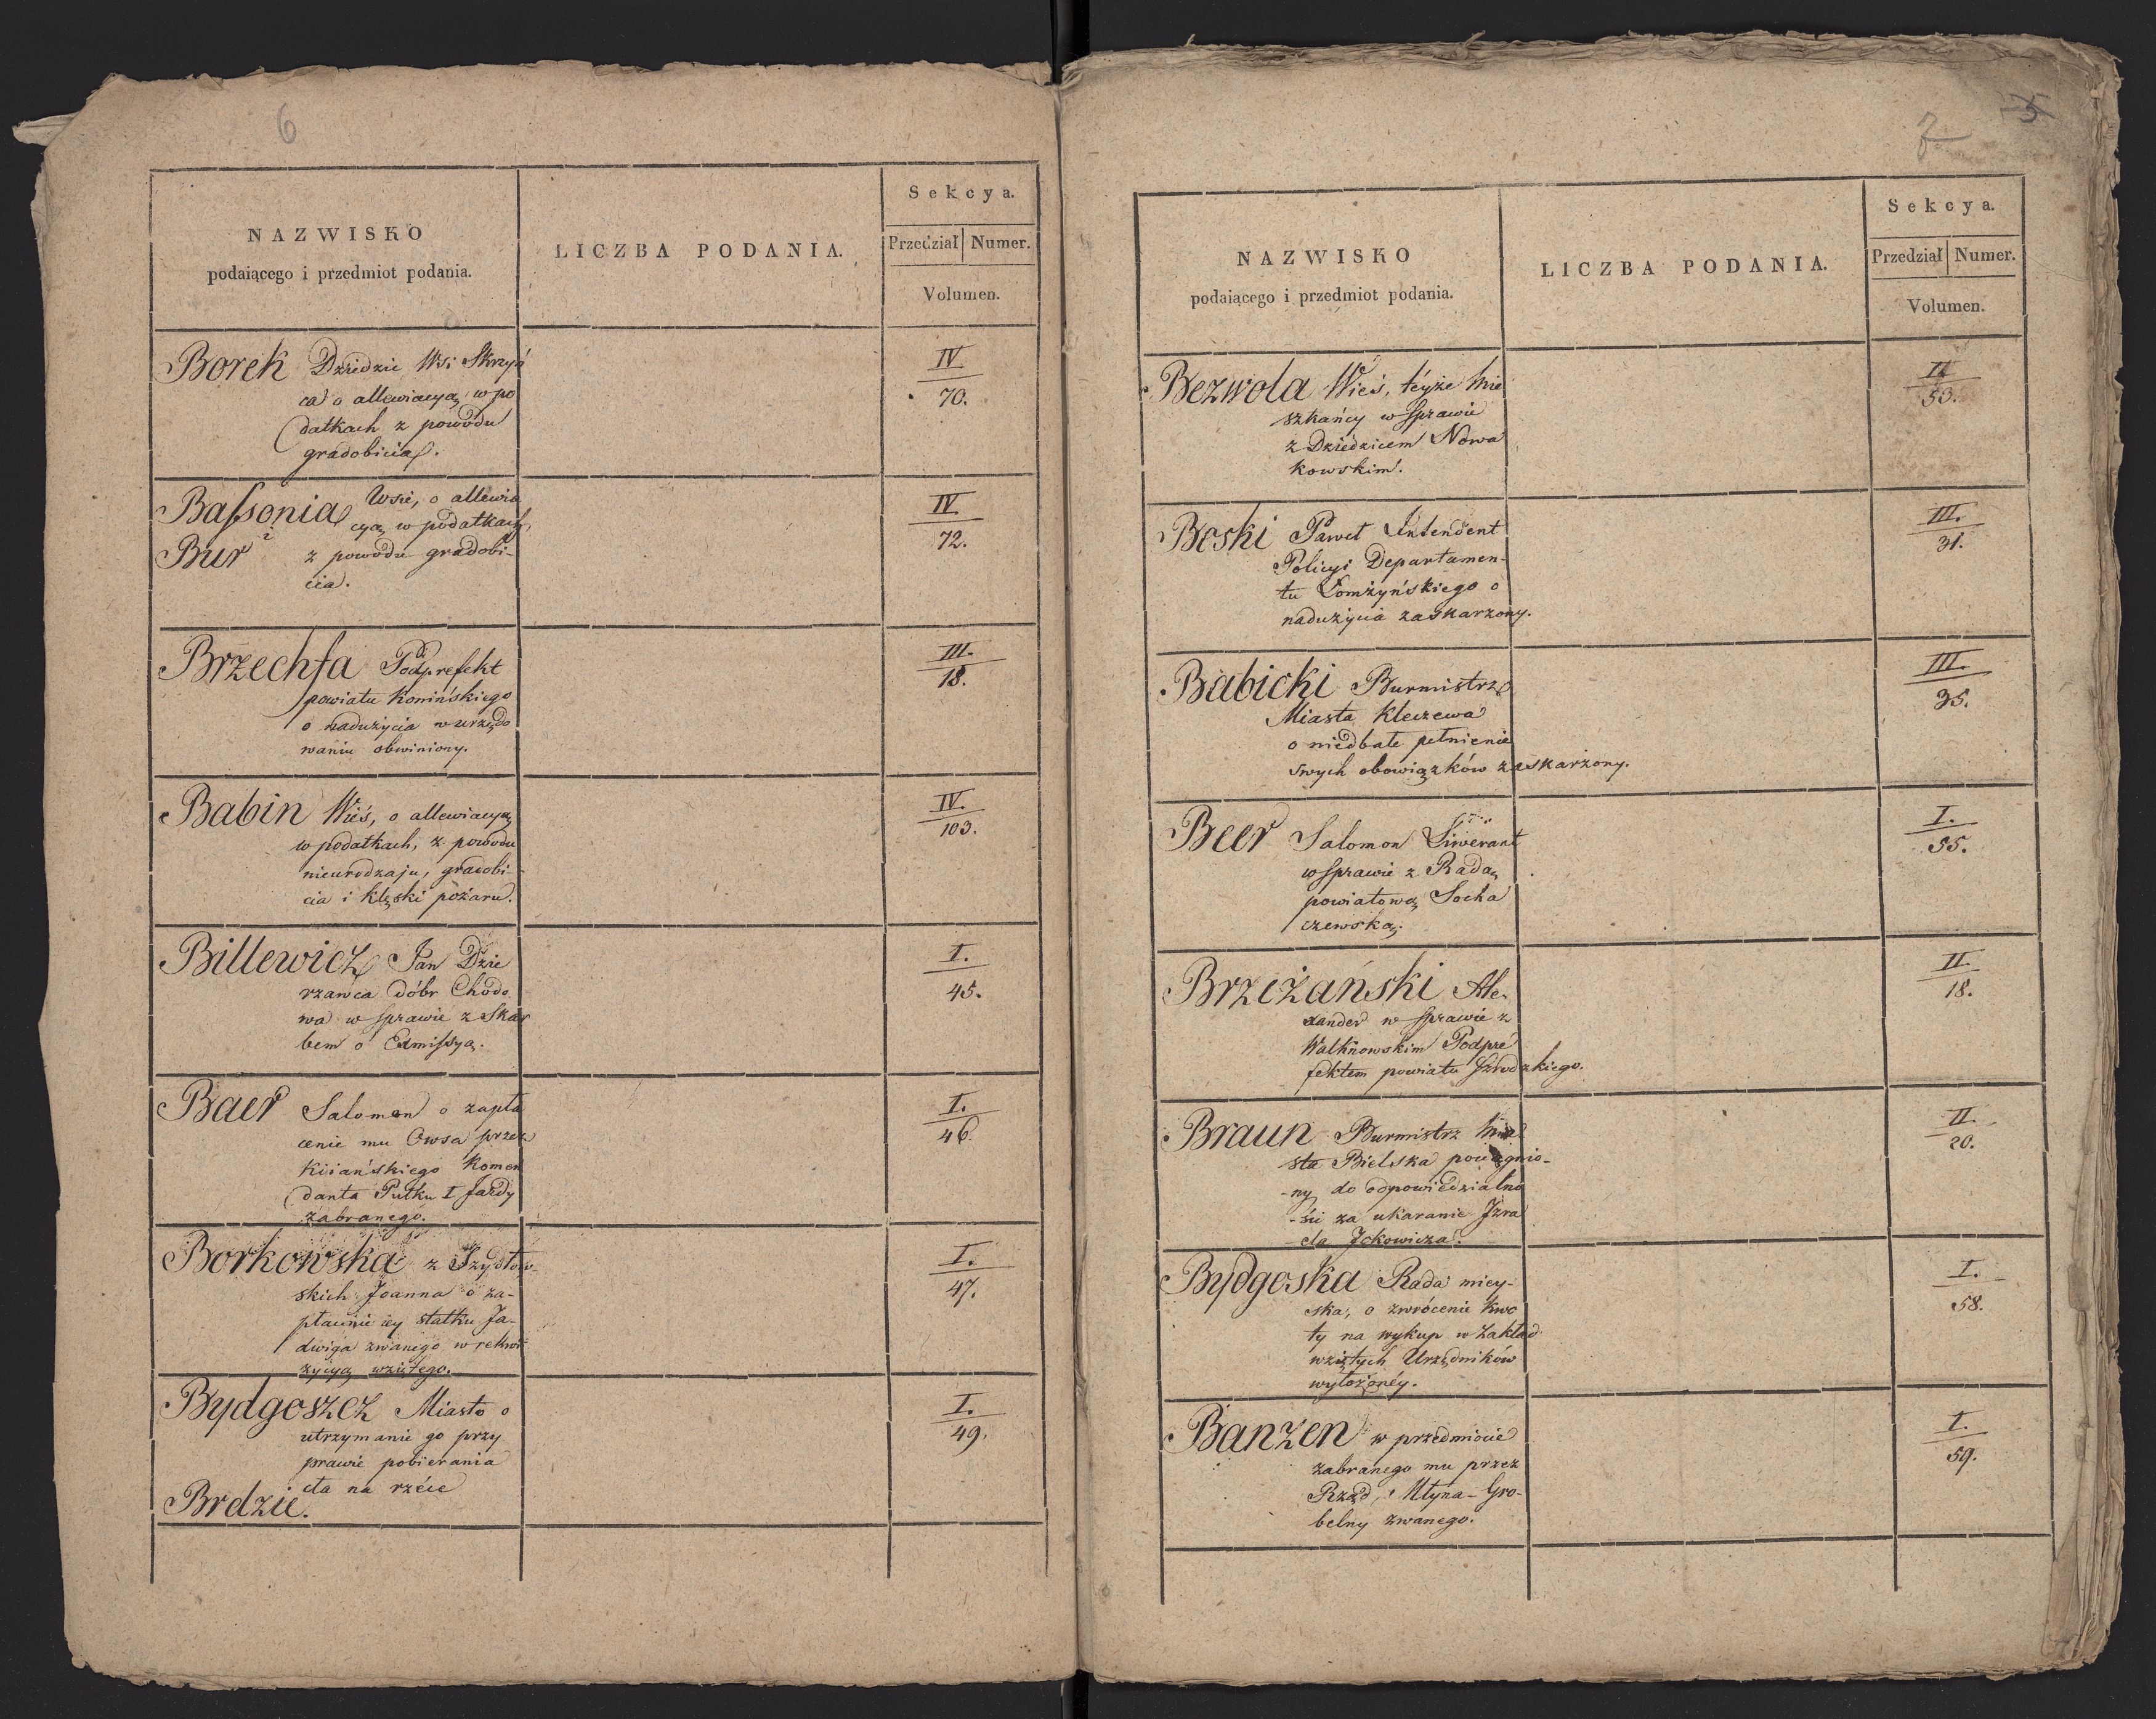 6
NAZWISKO
podaiącego i przedmiot podania.
LICZBA PODANIA.
Sekcya.
Przedział Numer.
Volumen.
Borek Dziedzic Wsi Skrzyń
ca o allewiacyą w po
datkach z powodu
gradobicia.
IV
70.
Bassonia Wsie, o allewia
i cyą w podatkach,
Bur z powodu gradobi-
cia.
IV
72.
Brzechfa Podprefekt
powiatu Konińskiego
o nadużycia w urzędo
waniu obwiniony.
III.
18.
Babin Wieś, o allewiacyą
w podatkach, z powodu
nieurodzaju, gradobi-
cia i klęski pożaru.
IV.
103.
Billewicz Jan Dzie
rzawca dóbr Chodo
wa w sprawie z Skar
bem o Exmissyą.
I.
45.
Baer Salomon o zapła
cenie mu Owsa przez
Kiiańskiego Komen
danta Pułku I Jazdy
zabranego.
I.
46.
Borkowska z Szysłow-
skich Joanna o za-
płacenie iey statku Ja-
dwiga zwanego w rekwi
zycyą wziętego.
I.
47.
Bydgoszcz Miasto o
utrzymanie go przy
prawie pobierania
cła na rzéce
Brdzie.
I.
49.
7 5
NAZWISKO
podaiącego i przedmiot podania.
LICZBA PODANIA.
Sekcya.
Przedział Numer.
Volumen.
Bezwola Wieś, téyże Mie
szkańcy w sprawie
z Dziedzicem Nowa
kowskim.
II
53.
Boski Paweł Intendent
Policyi Departamen-
tu Łomżyńskiego o
nadużycia zaskarzony.
III.
31.
Babicki Burmistrz
Miasta Kleczewa
o niedbałe pełnienie
swych obowiązków zaskarżony.
III.
35.
Beer Salomon Liwerant
w sprawie z Radą
powiatową Socha
czewską.
I.
55.
Brzeżański Ale-
xander w sprawie z
Walknowskim Podpre
fektem powiatu Szrodzkiego.
II.
18.
Braun Burmistrz Mia
sta Bielska pociągnio-
-ny do odpowiedzialno
-ści za ukaranie Izra
ela Ickowicza.
II.
20.
Bydgoska Rada miey-
ska, o zwrócenie kwo
ty na wykup w zakład
wziętych Urzędników
wyłożonéy.
I.
58.
Banzen w przedmiocie
zabranego mu przez
Rząd, Młyna-Gro-
belny zwanego.
I.
59.